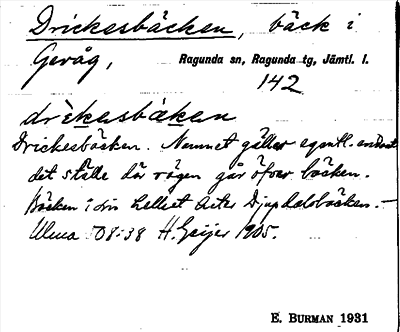 Drickesbäcken, bäck i
Gevåg, Ragunda sn, Ragunda tg, Jämtl. l.
142
drèkasbäkən
Drickesbäcken. Namnet gäller egentl. endast
det ställe där vägen går öfver bäcken.
Bäcken i sin helhet heter Djupdalsbäcken.—
Ulma 708:38 H. Geijer 1905.
E. BURMAN 1931